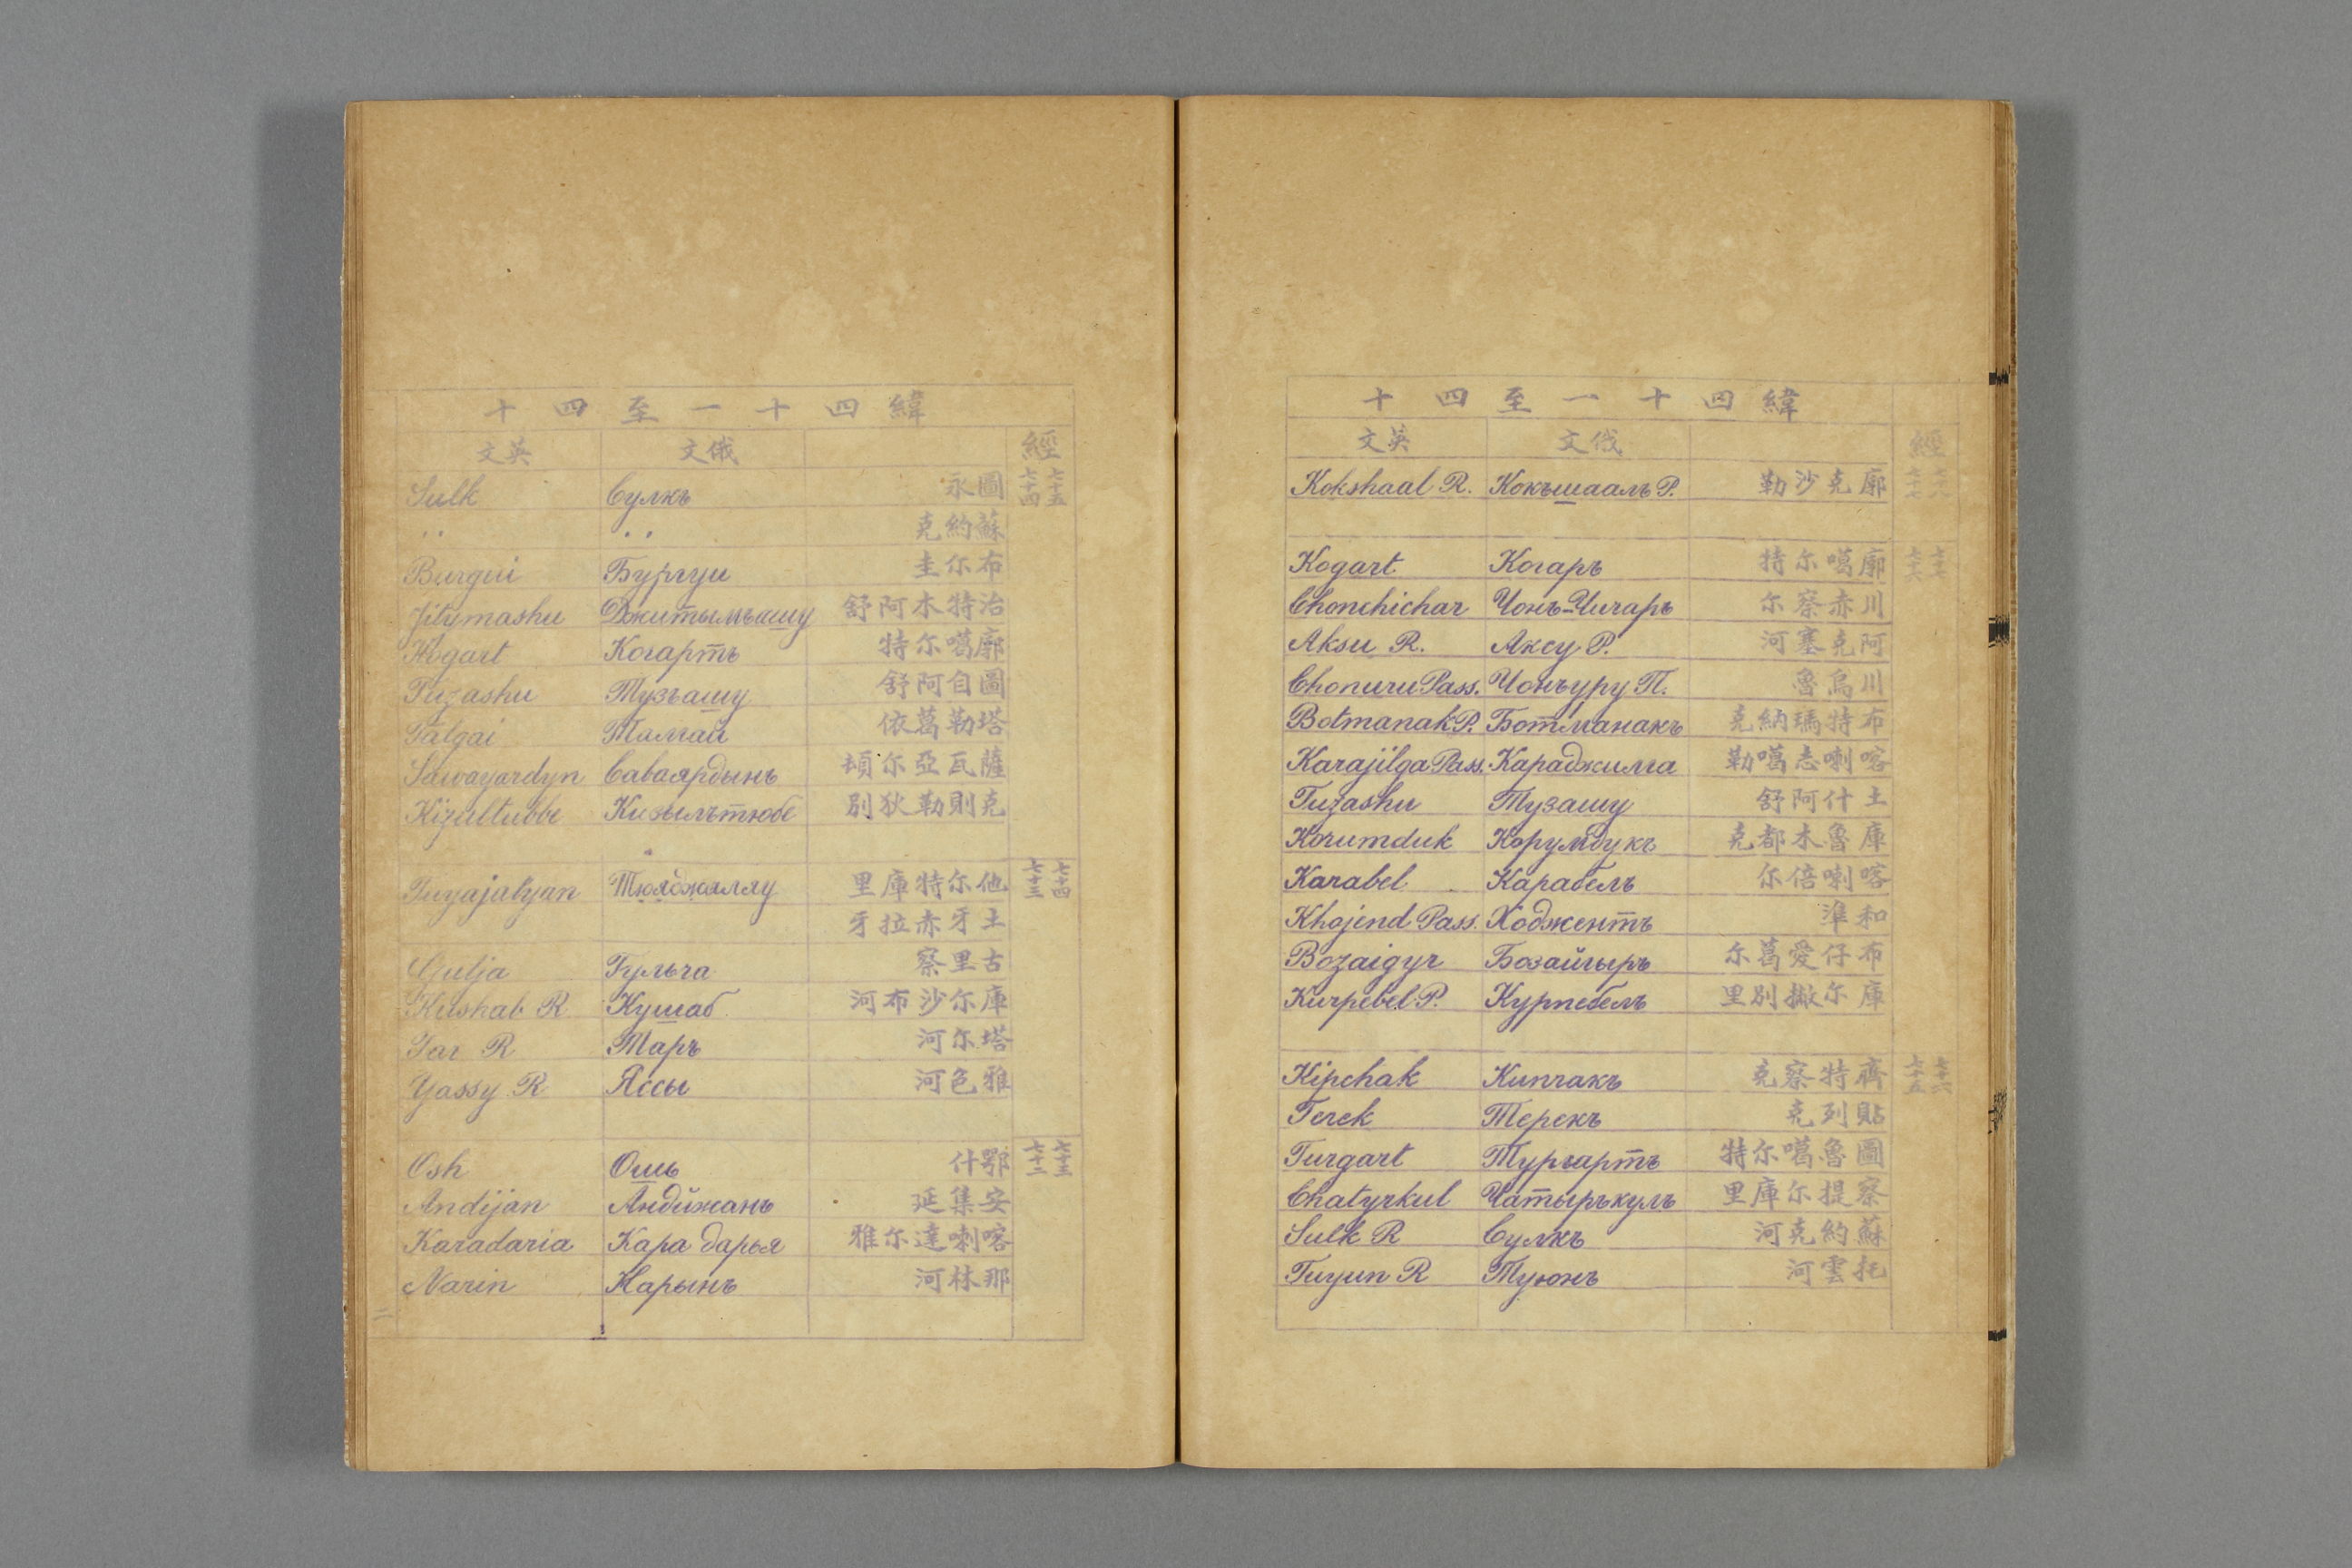 緯四十一至四十
英文 俄文 經
Kokshaal R. Кокъшаалъ Р. 廓克沙勒 七十八 七十七
Kogart Когаръ 廓噶尔特 七十七 七十六
Chonchichar Чонъ-Чичаръ 川赤察尔
Aksu R. Аксу Р. 阿克塞河
Chonuru Pass. Чонъуру П. 川烏魯
Botmanak P. Ботманакъ 布特瑪納克
Karajilga Pass. Караджилга 喀喇志噶勒
Tuzashu Тузашу 土什阿舒
Korumduk Корумдукъ 庫魯木都克
Karabel Карабелъ 喀喇倍尔
Khojend Pass. Ходжентъ 和準
Bozaigyr Бозайгыръ 布仔愛葛尔
Kurpebel P. Курпебелъ 庫尔撇別里
Kipchak Кипчакъ 齊特察克 七十六 七十五
Terek Терекъ 貼列克
Turgart Тургартъ 圖魯噶尔特
Chatyrkul Чатыръкулъ 察提尔庫里
Sulk R Сулкъ 蘇約克河
Tuyun R Туюнъ 托雲河
緯四十一至四十
英文 俄文 經
Sulk Сулкъ 圖永 七十五 七十四
" " 蘇約克
Burgui Бургуи 布尔圭
Jitymashu Джитымъашу 治特木阿舒
Kogart Когартъ 廓噶尔特
Tuzashu Тузъашу 圖自阿舒
Talgai Талгай 塔勒葛依
Sawayardyn Саваярдынъ 薩瓦亞尔頓
Kizultubbe Кизылътюбе 克則勒狄別
Tuyajalyan Тюяджяллу 他尔特庫里 七十四 七十三
土牙赤拉牙
Gulja Гульча 古里察
Kushab R Кушаб 庫尔沙布河
Tar R Таръ 塔尔河
Yassy R Яссы 雅色河
Osh Ошь 鄂什 七十三 七十二
Andijan Андижанъ 安集延
Karadaria Кара дарья 喀喇達尔雅
Narin Нарынъ 那林河
二